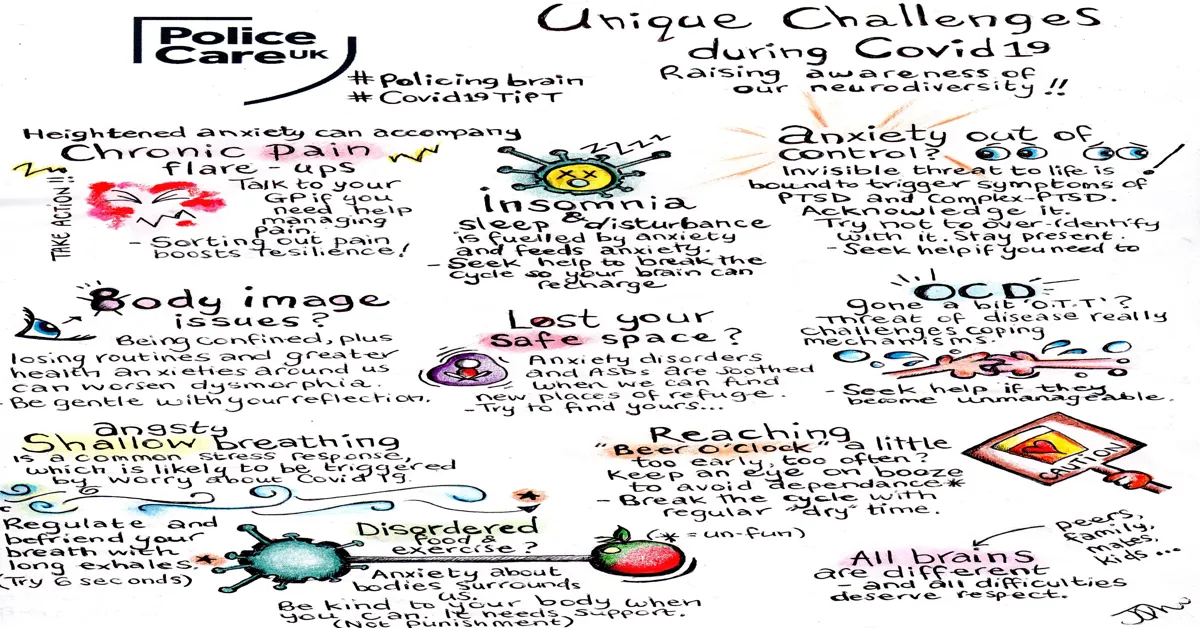 Police
Care UK
# Policing brain
# Covid19 TiPT
Unique Challenges
during Covid19
Raising awareness of
our neurodiversity !!
Heightened anxiety can accompany
Chronic Pain
flare-ups
TAKE ACTION!!
Talk to your
GP if you
need help
managing
pain.
- Sorting out pain
boosts resilience!
zzzz
insomnia
&
sleep disturbance
is fuelled by anxiety
and feeds anxiety.
- Seek help to break the
cycle so your brain can
recharge
anxiety out of
control?
Invisible threat to life is
bound to trigger symptoms of
PTSD and Complex-PTSD.
Acknowledge it.
Try not to over-identify
with it. Stay present.
- Seek help if you need to
Body image
issues?
Being confined, plus
losing routines and greater
health anxieties around us
can worsen dysmorphia.
- Be gentle with your reflection.
Lost your
Safe space?
Anxiety disorders
and ASDs are soothed
when we can find
new places of refuge.
- Try to find yours...
OCD
gone a bit 'O.T.T'?
Threat of disease really
challenges coping
mechanisms.
- Seek help if they
become unmanageable.
angsty
Shallow breathing
is a common stress response,
which is likely to be triggered
by worry about Covid 19.
Regulate and
befriend your
breath with
long exhales. *
(Try 6 seconds)
Disordered
food &
exercise?
Anxiety about
bodies surrounds
us.
Be kind to your body when
you can. It needs support.
(Not punishment)
Reaching
"Beer O'Clock" a little
too early, too often?
Keep an eye on booze
to avoid dependance*
- Break the cycle with
regular "dry" time.
(* = un-fun)
CAUTION
peers,
family,
mates,
kids...
All brains
are different
- and all difficulties
deserve respect.